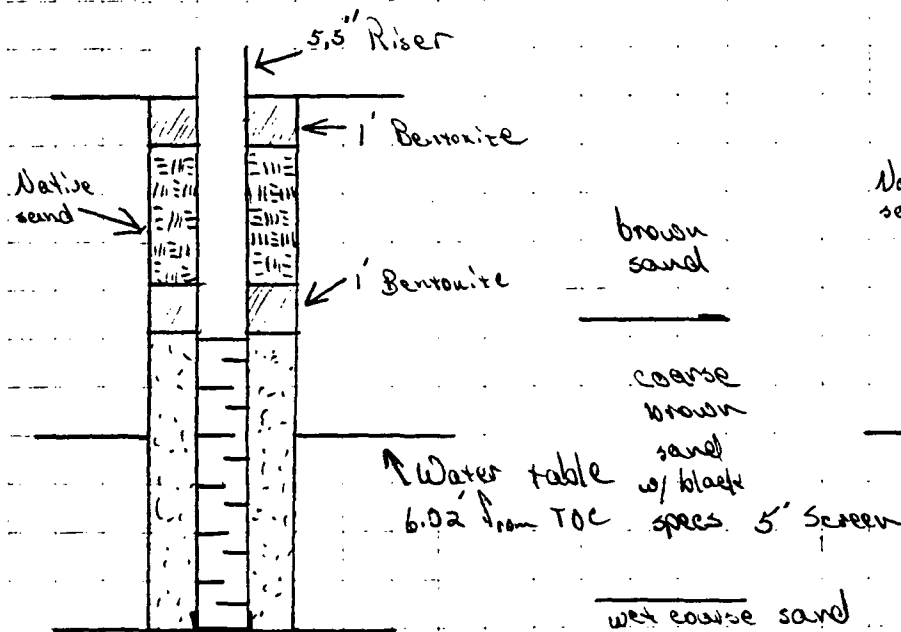 5.5" Riser
1' Bentonite
Native
sand
1' Bentonite
brown
sand
coarse
brown
sand
w/ black
specs
Water table
6.02' from TOC
5' Screen
wet coarse sand